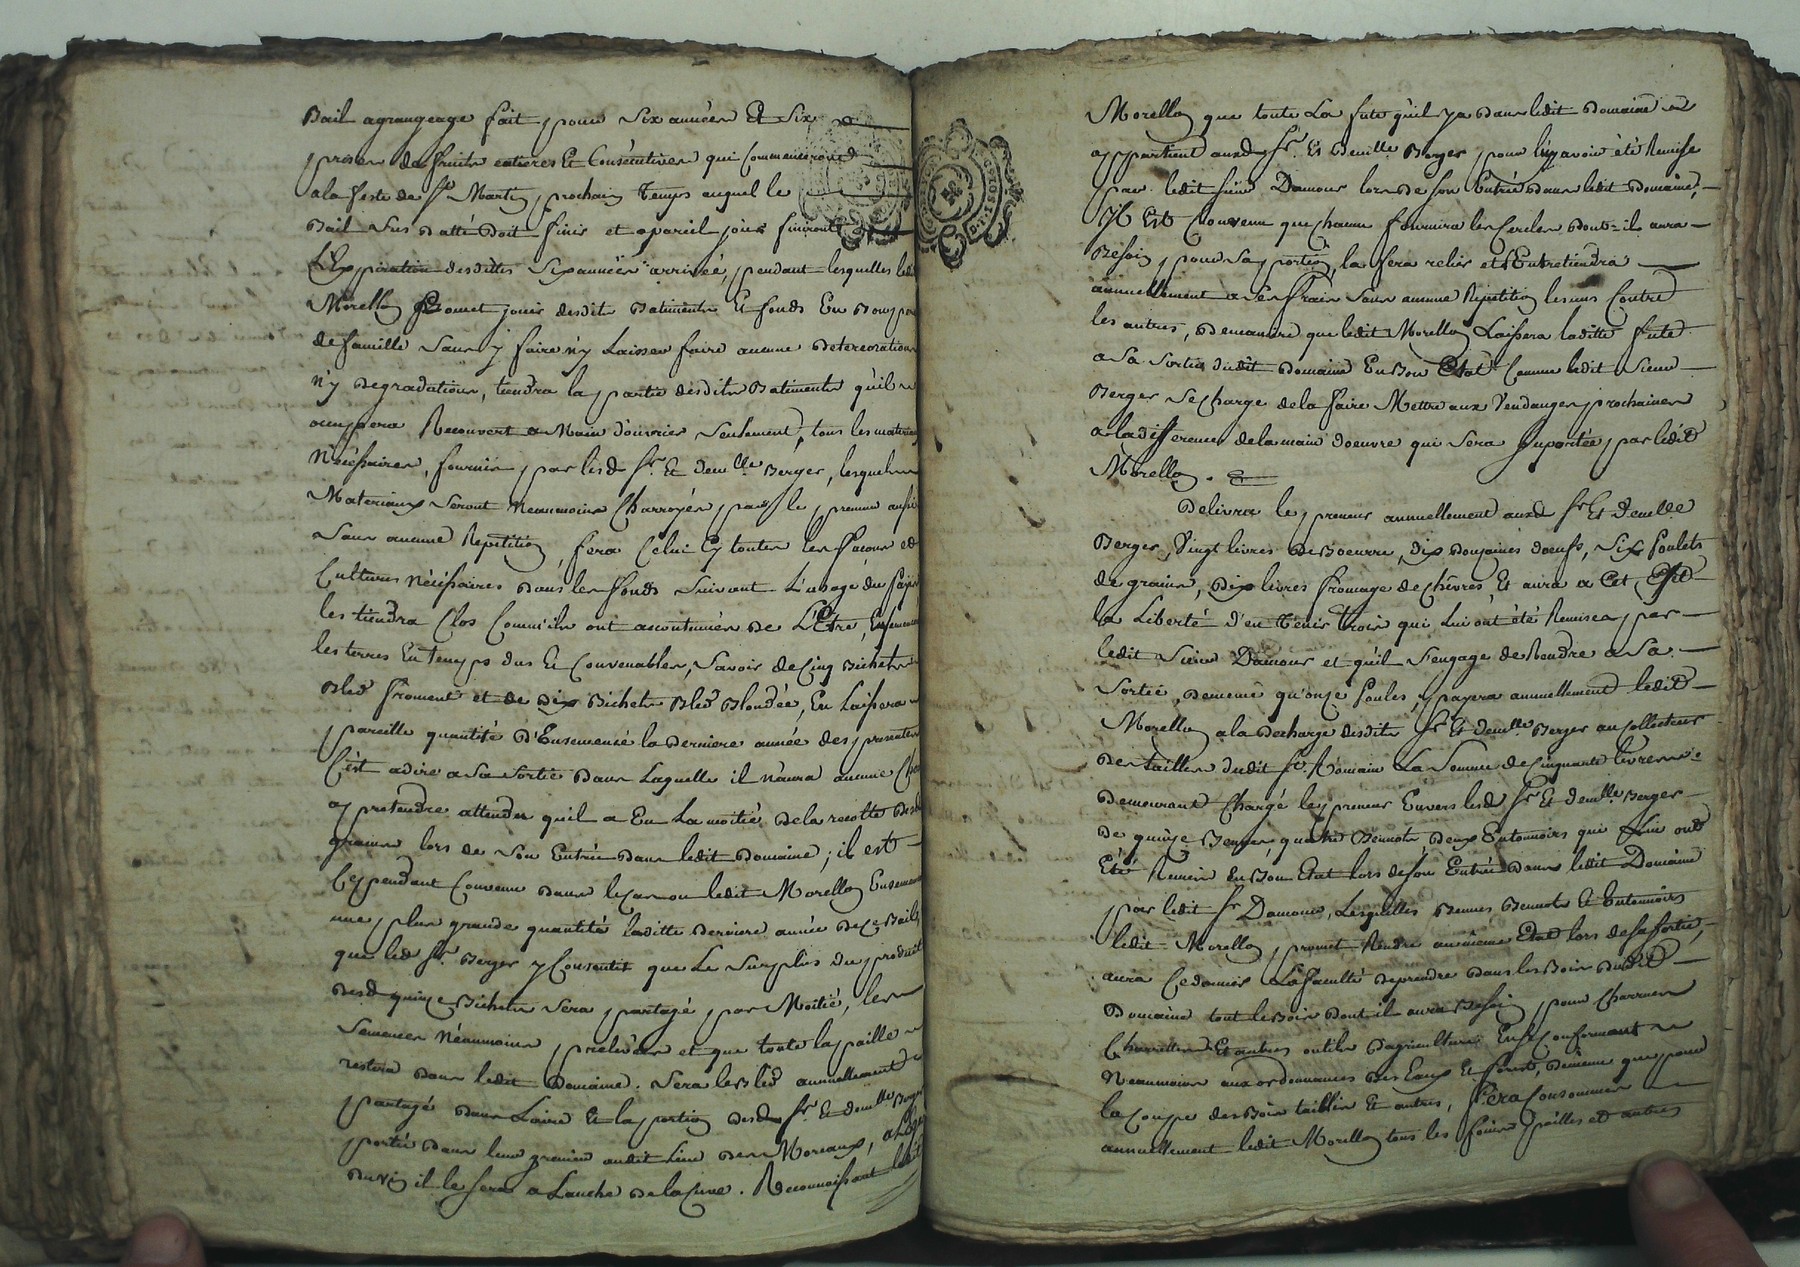 Bail agrangeage fait pour Six années Et Six
prises de fruits entieres Et Consécutives qui Commenceront
a la feste de St Martin prochain Temps auquel le
Bail Sus datté Doit finir et apareil jour finiront
L'Expiration desdittes Six années arrivée, pendant lesquelles led
Morellon Promet jouir desdit Batiments Et fonds En Bon pere
de famille Sans y faire n'y Laisser faire aucune Deterioration
n'y Degradations, tiendra la partie desdits Batiments qu'il
occupera Recouvert a Main d'ouvrier Seulement, tous les materiaux
Nécéssaires, fournis par lesd Sr Et demlle Berger, lesquels
Materiaux Seront Neanmoins Charroyés par le preneur aussi
Sans aucune Repetition, fera Celui Cy toutes les façons et
Cultures Nécéssaires dans les fonds Suivant L'usage du païs
les tiendra Clos Comm'ils ont accoutumés De L'Etre, Ensemencera
les terres En Temps dus Et Convenables, Savoir de Cinq Bichets
Bled froment et de Dix Bichets Bled Blondée, En Laissera
pareille quantité D'Ensemencé la Derniere année des presentes
C'est adire a Sa Sortie Dans Laquelle il n'aura aucune Chose
a pretendre attendu qu'il a Eu La moitié De la recolte Desd
grains lors de Son Entrée Dans ledit Domaine; il est
Cependant Convenu Dans le Cas ou ledit Morellon Ensemence
une plus grande quantité laditte Derniere année De Ce Bail
que led Sr Berger y Consentit que Le Surplus du produit
Desd quinze Bichets Sera partagé par Moitié, les
Semences Néanmoins prelevées et que toute la paille
restera Dans ledit Domaine. Sera le Bled annuellement
partagé Dans L'aire Et la portion Desd Sr Et demlle Berger
portée Dans leur grenier audit Lieu Des Moreaux, a L'Egard
Du vin il le Sera a L'anche De la Cuve. Reconnoissant ledit
Morellon que toute La fute qu'il y a Dans ledit Domaine
appartient auxd Sr Et Demlle Berger pour luy avoir été Remise
par ledit Sieur Damour lors De Son Entrée Dans ledit Domaine,
Il Est Convenu que Chacun fournira les Cercles Dont il aura
Besoin pour Sa portion, la fera relier et l'Entretiendra
annuellement a Ses frais Sans aucune Repetition les uns Contre
les autres, De maniere que ledit Morellon Laissera laditte fute
a Sa Sortie dudit Domaine En Bon Etat Comme ledit Sieur
Berger Se Charge de la faire Mettre aux Vendanges prochaines
a la difference de la main d'oeuvre qui Sera Suportée par ledit
Morellon.
Delivra le preneur annuellement auxd Sr Et demlle
Berger, Vingt livres De Boeurre, dix Douzaines d'oeufs, Six Poulets
de grains, Dix livres fromage de Chêvres, Et aura a Cet Effet
la Liberté d'en Tenir Trois qui Lui ont été Remises par
ledit Sieur Damour et qu'il S'engage de Rendre a Sa
Sortie, De même qu'onze Poules, payera annuellement ledit
Morellon a la Decharge desdits Sr Et demlle Berger au Collecteur
Des tailles dudit St Romain La Somme de Cinquante livres
Demeurant Chargé le preneur Envers lesd Sr Et demlle Berger
De quinze Bennes, quatre Bennots, Deux Entonnoirs qui Lui ont
Eté Remis En Bon Etat lors de Son Entrée Dans ledit Domaine
par ledit Sr Damour, Lesquelles Bennes Bennots Et Entonnoirs
ledit Morellon promet Rendre au même Etat lors de Sa Sortie,
aura Ce dernier La faculté De prendre Dans les Bois Dudit
Domaine tout le Bois Dont il aura Besoin pour Charrues
Charettes Et autres outils D'agriculture En Se Conformant
Neanmoins aux ordonnances Des Eaux Et forest, De même que pour
la Coupe des Bois taillis Et autres, fera Consommer
annuellement ledit Morellon tous les foins pailles et autres